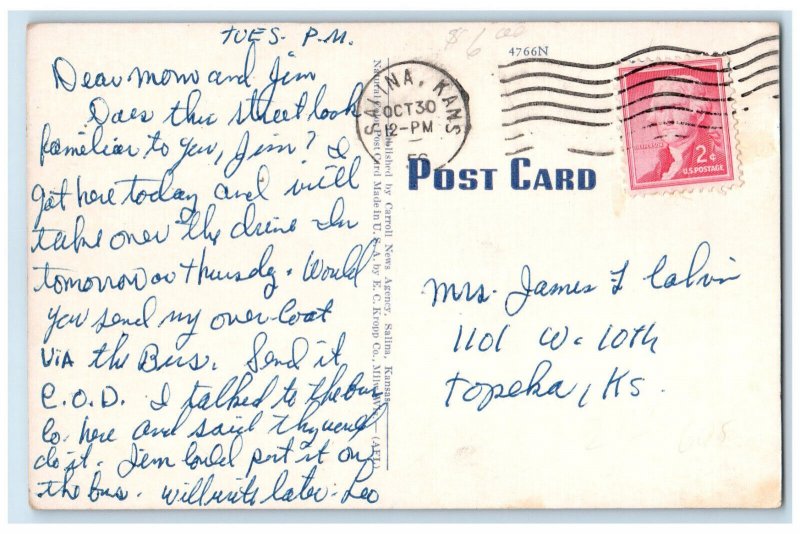 TUES. P.M.
Dear Mom and Jim
Does this street look
familiar to you, Jim? I
got here today and will
take over the drive-In
tomorrow or Thursdy. Would
you send my over-coat
VIA the Bus. Send it
C.O.D. I talked to the bus
Co. here and said they would
do it. Jim could put it on
the bus. Will write later. Leo
Published by Carroll News Agency, Salina, Kansas
Natural Color Post Card Made in U.S.A. by E. C. Kropp Co., Milwaukee, Wis. (AFL)
$6.00
4766N
SALINA, KANS
OCT 30
12-PM
56
POST CARD
2¢
U.S. POSTAGE
Mrs. James F Calvin
1101 W. 10th
Topeka, Ks.